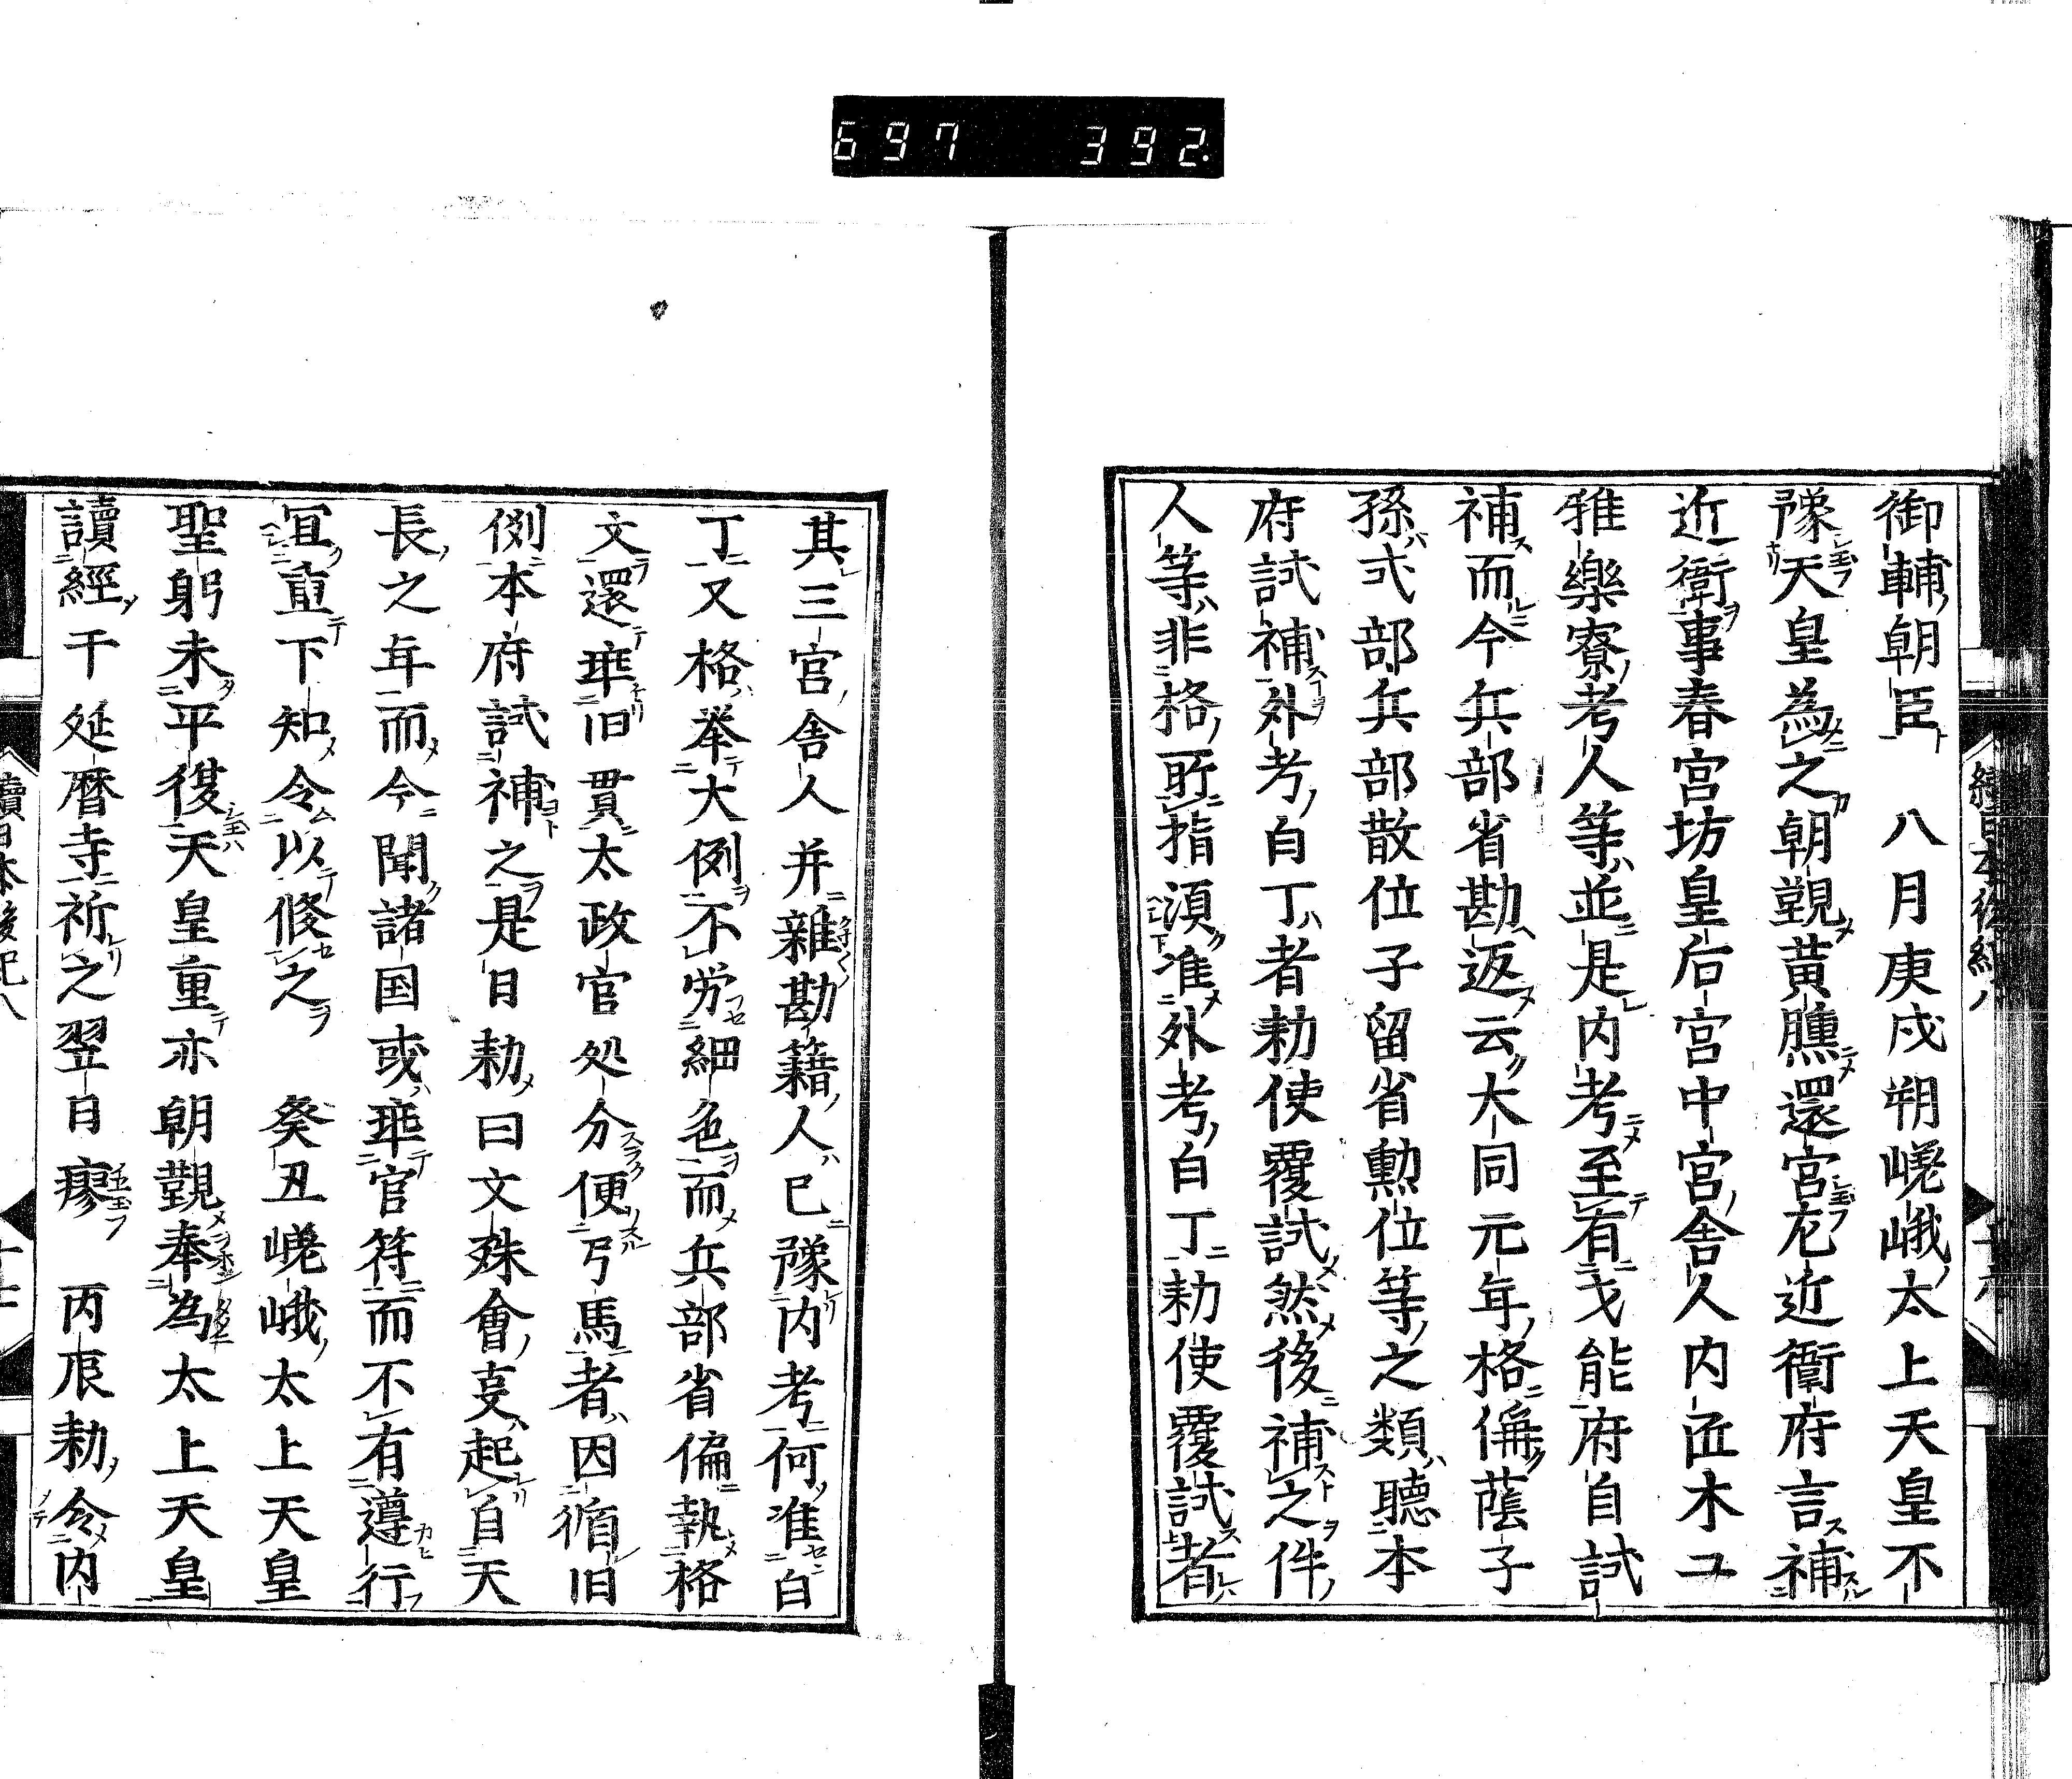 697 392.
御輔朝臣 八月庚戌朔嵯峨太上天皇不
豫天皇為之朝覲黃朣還宮左近衛府言補
近衛事春宮坊皇后宮中宮舍人内匠木工
雅樂寮考人等並是内考至有才能府自試
補而今兵部省勘返云大同元年格偁蔭子
孫式部兵部散位位子留省勳位等之類聽本
府試補外考白丁者勅使覆試然後補之件
人等非格所指須准外考白丁勅使覆試者
其三宮舍人并雜勘籍人已豫内考何准白
丁又格舉大例不労細色而兵部省偏執格
文還乖旧貫太政官処分便弓馬者因循旧
例本府試補之是日勅曰文殊會叓起自天
長之年而今聞諸国或乖官符而不有遵行
冝直下知令以修之 癸丑嵯峨太上天皇
聖躬未平復天皇重亦朝覲奉為太上天皇
讀經于延暦寺祈之翌日瘳 丙辰勅令内
續日本後紀八